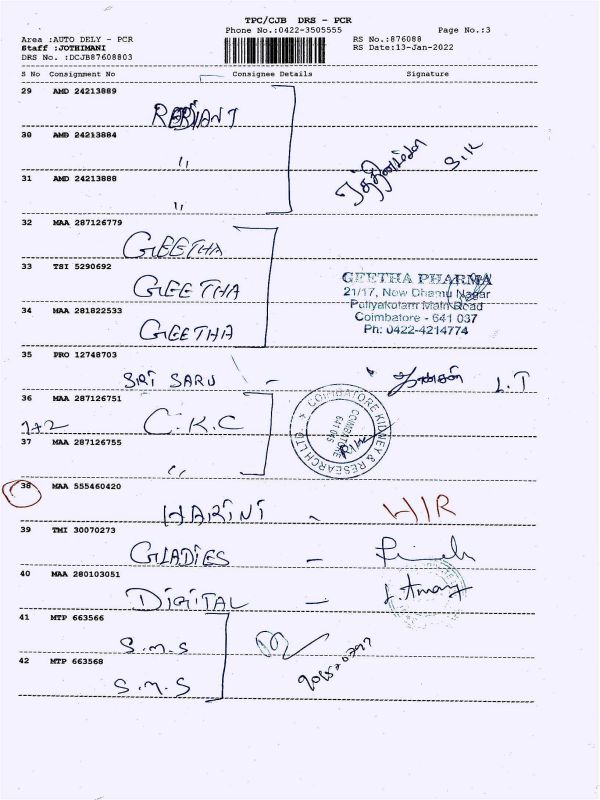 TPC/CJB DRS - PCR
Phone No.:0422-3505555
Page No.:3
Area :AUTO DELY - PCR
RS No.:876088
Staff :JOTHIMANI
RS Date:13-Jan-2022
DRS No. :DCJB87608803
S No Consignment No Consignee Details Signature
29 AMD 24213889
30 AMD 24213884
"
31 AMD 24213888
"
S.K
32 MAA 287126779
GEETHA
33 TSI 5290692
GEETHA
GEETHA PHARMA
21/17, New Dhamu Nagar
Puliyakulam Main Road
Coimbatore - 641 037
Ph: 0422-4214774
34 MAA 281822533
GEETHA
35 PRO 12748703
SIRI SARU - L.T
36 MAA 287126751
1+2 C.K.C
COIMBATORE KIDNEY & RESEARCH LTD.
COIMBATORE
641 045
37 MAA 287126755
"
38 MAA 555460420
HARINI - HIR
39 TMI 30070273
GLADIES -
40 MAA 280103051
DIGITAL -
41 MTP 663566
S.M.S
42 MTP 663568
S.M.S